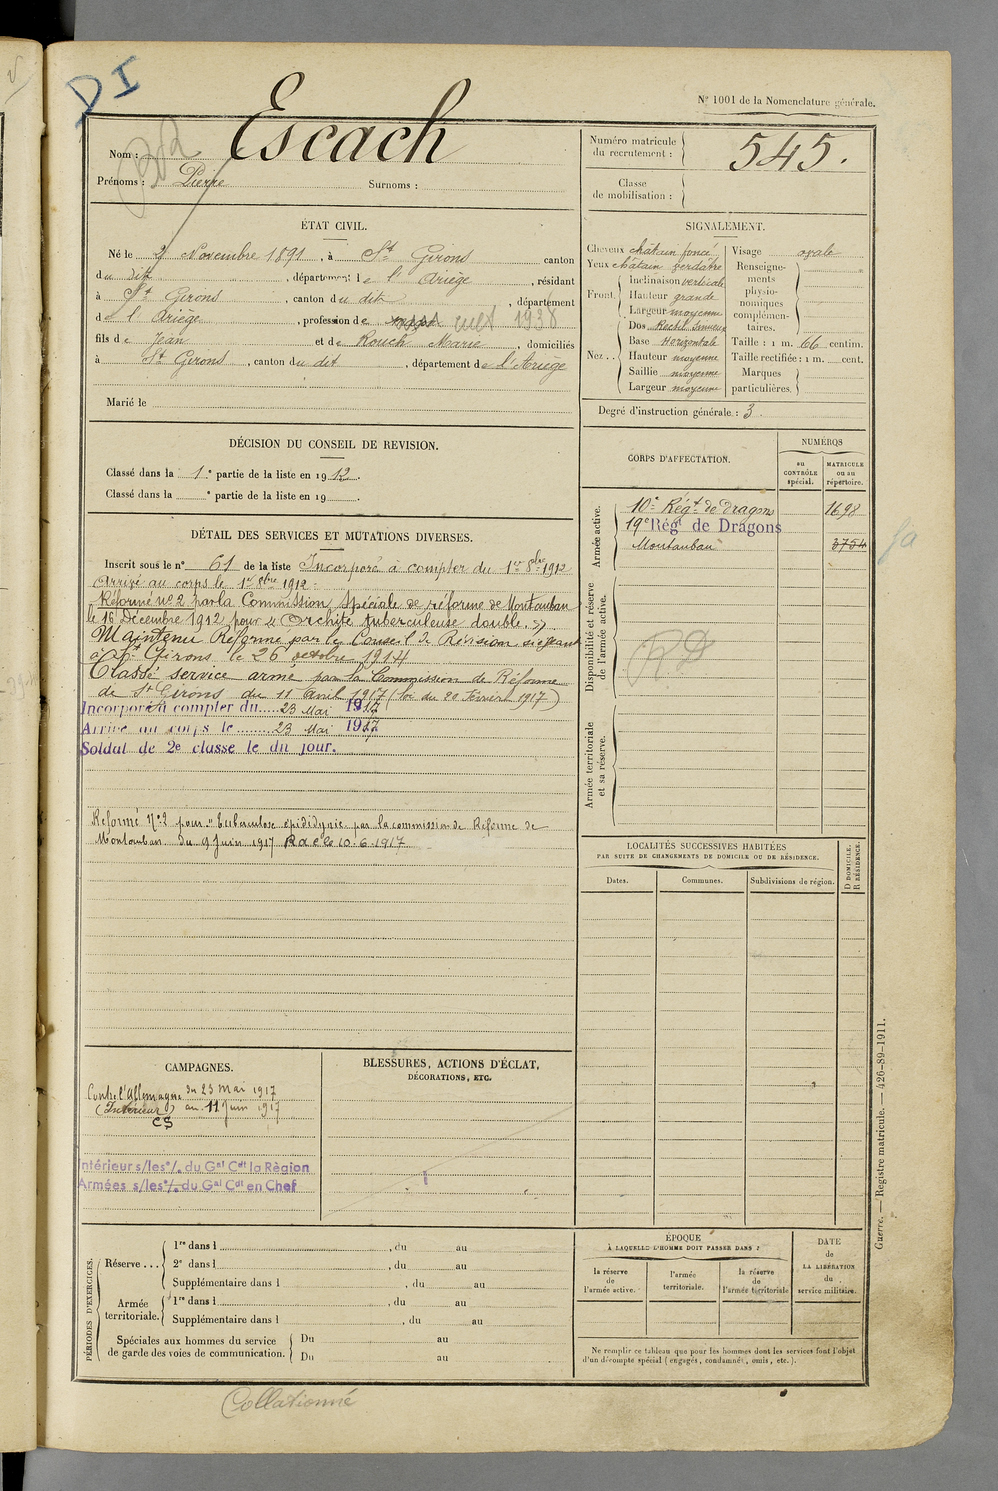 DI
N° 1001 de la Nomenclature générale.
Nom : Escach
Prénoms : Pierre Surnoms :
Numéro matricule du recrutement : 545.
Classe de mobilisation :
ÉTAT CIVIL.
Né le 2 Novembre 1891, à St Girons canton
du dit, département de l'Ariège, résidant
à St Girons, canton du dit, département
de l'Ariège, profession de cult 1938
fils de Jean et de Rouch Marie, domiciliés
à St Girons, canton du dit, département de l'Ariège
Marié le
SIGNALEMENT.
Cheveux châtain foncé
Yeux châtain verdâtre
Front. Inclinaison verticale
Hauteur grande
Largeur moyenne
Nez.. Dos Rectil. sinueux
Base Horizontale
Hauteur moyenne
Saillie moyenne
Largeur moyenne
Visage ovale
Renseignements physionomiques complémentaires.
Taille : 1 m. 66 centim.
Taille rectifiée : 1 m. cent.
Marques particulières.
Degré d'instruction générale : 3.
DÉCISION DU CONSEIL DE REVISION.
Classé dans la 1e partie de la liste en 1912.
Classé dans la e partie de la liste en 19 .
CORPS D'AFFECTATION.
NUMÉROS
au CONTRÔLE spécial.
MATRICULE ou au répertoire.
Armée active.
10e Régt de dragons 1698
19e Régt de Dragons
Montauban 3754
Disponibilité et réserve de l'armée active.
RD
Armée territoriale et sa réserve.
DÉTAIL DES SERVICES ET MUTATIONS DIVERSES.
Inscrit sous le n° 61 de la liste Incorporé à compter du 1er 8bre 1912
Arrivé au corps le 1er 8bre 1912.
Réformé n°2 par la Commission Spéciale de réforme de Montauban
le 16 Décembre 1912 pour « Orchite tuberculeuse double. »
Maintenu Réformé par le Conseil de Révision siégeant
à St Girons le 26 octobre 1914
Classé service armé par la Commission de Réforme
de St Girons du 11 avril 1917 (loi du 20 Février 1917)
Incorporé à compter du 23 Mai 1917
Arrivé au corps le 23 Mai 1917
Soldat de 2e classe le du jour.
Réformé N°2 pour "Tuberculose épididymie par la commission de Réforme de
Montauban du 9 Juin 1917 R d C le 10-6-1917
LOCALITÉS SUCCESSIVES HABITÉES
PAR SUITE DE CHANGEMENTS DE DOMICILE OU DE RÉSIDENCE.
Dates. Communes. Subdivisions de région.
D DOMICILE. R RÉSIDENCE.
CAMPAGNES.
Contre l'Allemagne du 23 Mai 1917
(Intérieur) au 11 Juin 1917
CS
Intérieur s/les °/. du Gal Cdt la Région
Armées s/les °/. du Gal Cdt en Chef
BLESSURES, ACTIONS D'ÉCLAT,
DÉCORATIONS, ETC.
PÉRIODES D'EXERCICES.
Réserve... 1re dans l , du au
2e dans l , du au
Supplémentaire dans l , du au
Armée territoriale. 1re dans l , du au
Supplémentaire dans l , du au
Spéciales aux hommes du service de garde des voies de communication. Du au
Du au
ÉPOQUE
À LAQUELLE L'HOMME DOIT PASSER DANS :
la réserve de l'armée active.
l'armée territoriale.
la réserve de l'armée territoriale
DATE de LA LIBÉRATION du service militaire.
Ne remplir ce tableau que pour les hommes dont les services font l'objet
d'un décompte spécial (engagés, condamnés, omis, etc.).
Guerre. — Registre matricule. — 426-89-1911.
Collationné